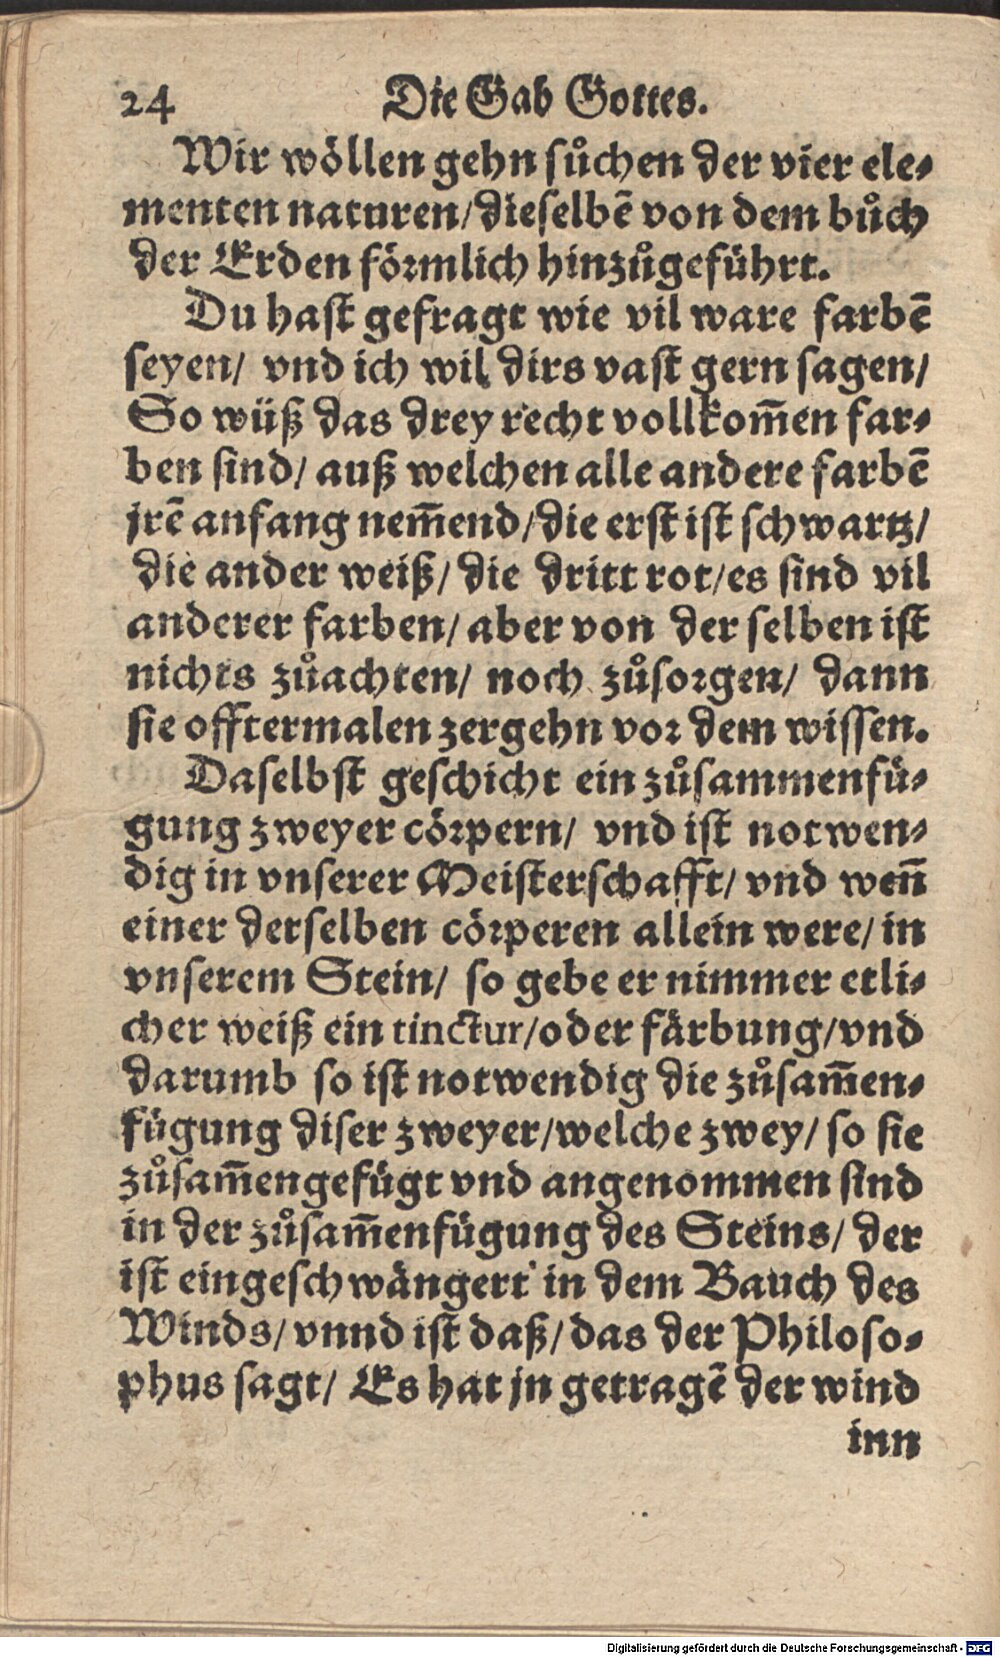 24 Die Gab Gottes.
Wir wöllen gehn ſůchen der vier ele⸗
menten naturen/dieſelbē von dem bůch
der Erden förmlich hinzůgeführt.
Du haſt gefragt wie vil ware farbē
ſeyen/ vnd ich wil dirs vaſt gern ſagen/
So wüß das drey recht vollkom̄en far⸗
ben ſind/ auß welchen alle andere farbē
jrē anfang nem̄end/die erſt iſt ſchwartz/
die ander weiß/ die dritt rot/es ſind vil
anderer farben/ aber von der ſelben iſt
nichts zůachten/ noch zůſorgen/ dann
ſie offtermalen zergehn vor dem wiſſen.
Daſelbſt geſchicht ein zůſammenfü⸗
gung zweyer cörpern/ vnd iſt notwen⸗
dig in vnſerer Meiſterſchafft/ vnd wen̄
einer derſelben cörperen allein were/ in
vnſerem Stein/ ſo gebe er nimmer etli⸗
cher weiß ein tinctur/oder färbung/vnd
darumb ſo iſt notwendig die zůſam̄en⸗
fügung diſer zweyer/welche zwey/ ſo ſie
zůſam̄engefügt vnd angenommen ſind
in der zůſam̄enfügung des Steins/ der
iſt eingeſchwängert in dem Bauch des
Winds/ vnnd iſt daß/ das der Philoſo⸗
phus ſagt/ Es hat jn getragē der wind
inn
Digitalisierung gefördert durch die Deutsche Forschungsgemeinschaft - DFG